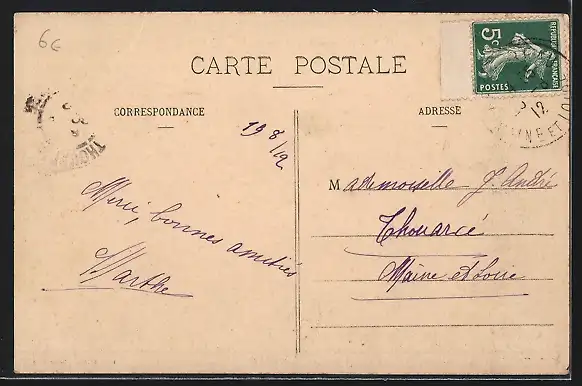 6€
CARTE POSTALE
CORRESPONDANCE
ADRESSE
5c
REPUBLIQUE FRANÇAISE
POSTES
12
NE ET LOIRE
THOUARCÉ
19 8/12
Merci, bonnes amitiés
Marthe
Mademoiselle J. André
Thouarcé
Maine et Loire